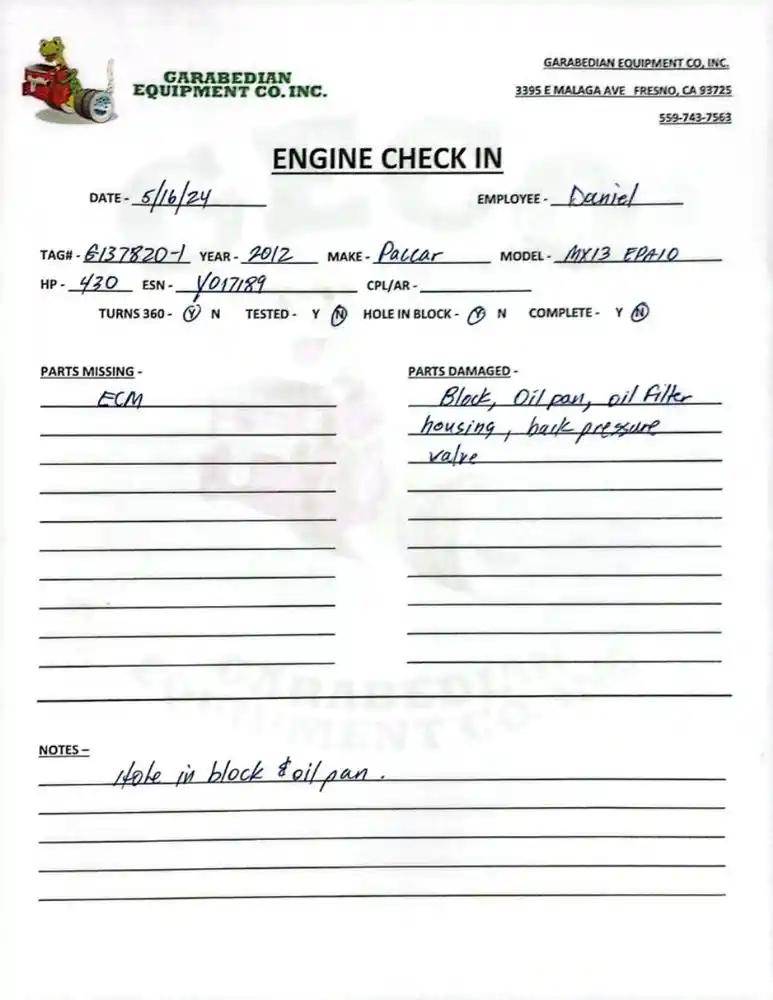 GARABEDIAN
EQUIPMENT CO. INC.
GARABEDIAN EQUIPMENT CO, INC.
3395 E MALAGA AVE FRESNO, CA 93725
559-743-7563
ENGINE CHECK IN
DATE - 5/16/24 EMPLOYEE - Daniel
TAG# - G137820-1 YEAR - 2012 MAKE - Paccar MODEL - MX13 EPA10
HP - 430 ESN - Y017189 CPL/AR -
TURNS 360 - Y N TESTED - Y N HOLE IN BLOCK - Y N COMPLETE - Y N
PARTS MISSING -
ECM
PARTS DAMAGED -
Block, Oil pan, oil filter
housing, back pressure
valve
NOTES –
Hole in block & oil pan.